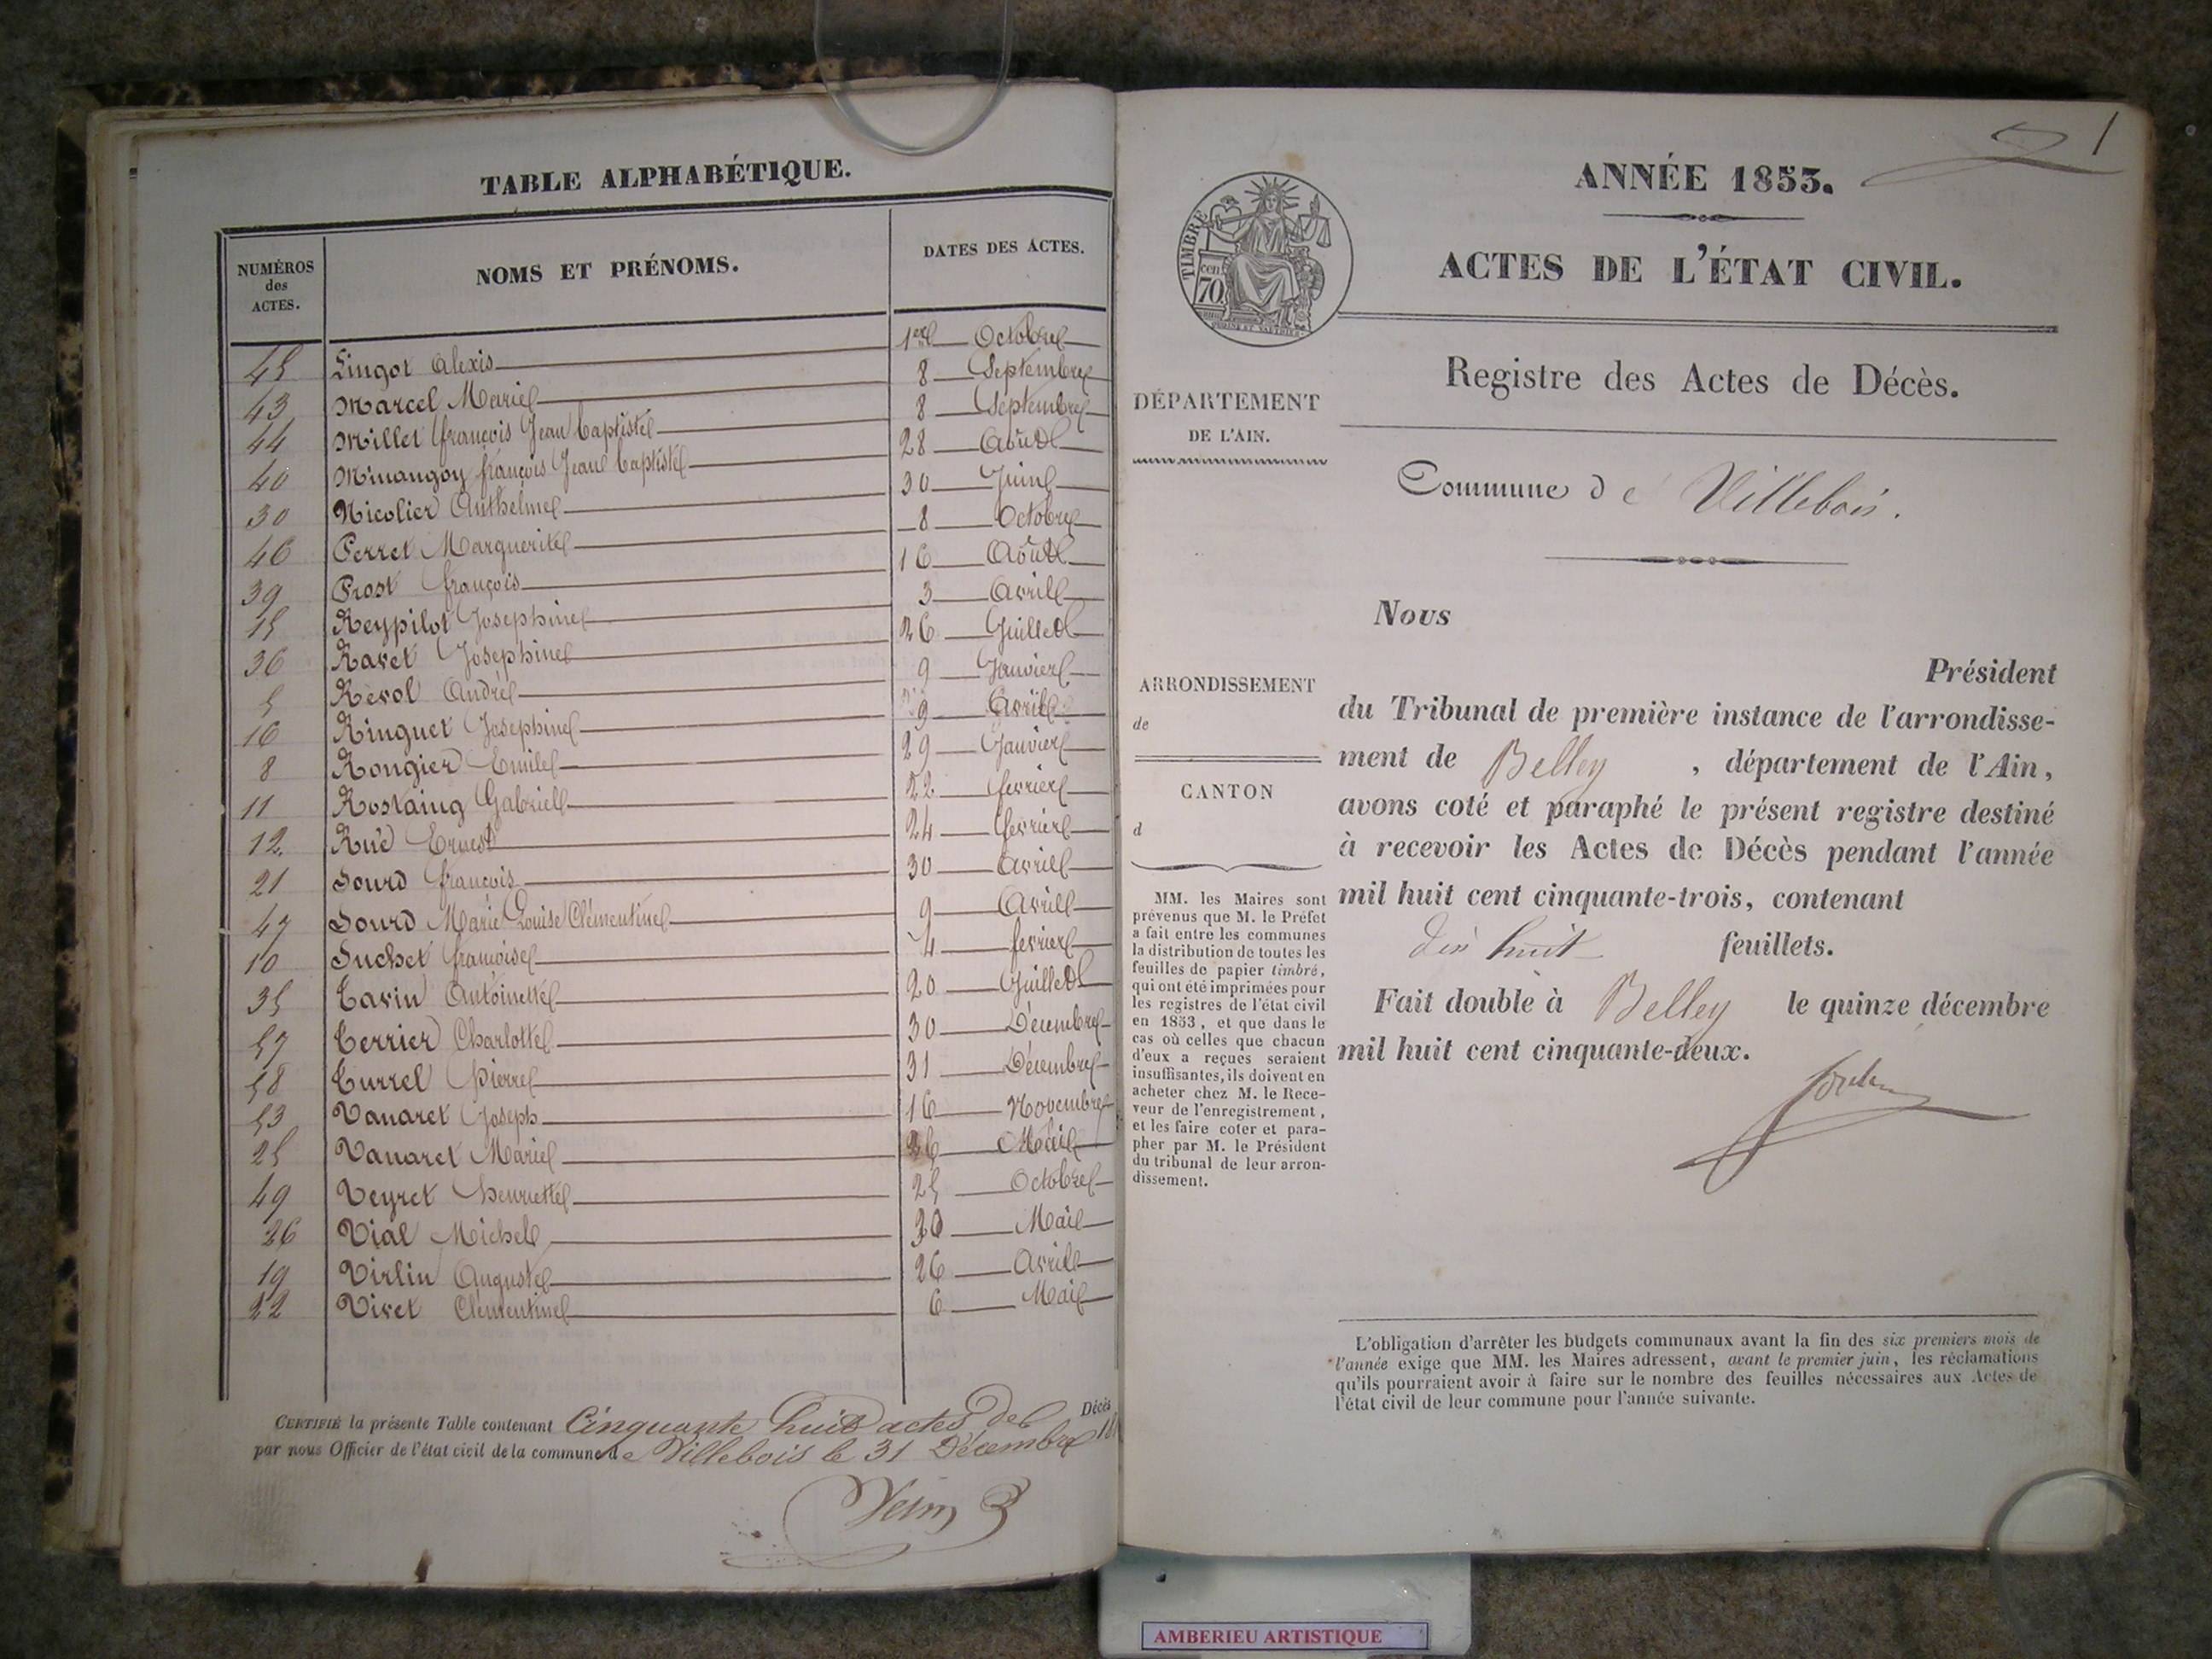 TABLE ALPHABÉTIQUE.
NUMÉROS des ACTES. NOMS ET PRÉNOMS. DATES DES ACTES.
45 Lingot Alexis 1er Octobre
43 Marcel Marie 8 Septembre
44 Millet françois Jean baptiste 8 Septembre
40 Minangoy françois Jean baptiste 28 Août
30 Nicolier Anthelme 30 Juin
46 Perret Marguerite 8 Octobre
39 Prost françois 16 Août
15 Reypilot Josephine 3 Avril
36 Ravet Josephine 26 Juillet
5 Revol André 9 Janvier
16 Ringuet Josephine 9 Avril
8 Rongier Emile 29 Janvier
11 Rostaing Gabriel 22 fevrier
12 Rué Ernest 24 fevrier
21 Sourd françois 30 Avril
47 Sourd Marie Louise Clémentine 9 Avril
10 Suchet françoise 4 fevrier
35 Tavin Antoinette 20 Juillet
57 Terrier Charlotte 30 Décembre
58 Turrel Pierre 31 Décembre
53 Vanaret Joseph 16 Novembre
25 Vanaret Marie 26 Mai
49 Veyret henriette 25 Octobre
26 Vial Michel 30 Mai
19 Virlin Auguste 26 Avril
22 Vivet Clémentine 6 Mai
CERTIFIÉ la présente Table contenant Cinquante huit actes de Décès
par nous Officier de l'état civil de la commune de Villebois le 31 Décembre 18
1
ANNÉE 1853.
TIMBRE
cen
70
ACTES DE L'ÉTAT CIVIL.
Registre des Actes de Décès.
DÉPARTEMENT
DE L'AIN.
Commune de Villebois.
Nous
Président
du Tribunal de première instance de l'arrondisse-
ment de Belley, département de l'Ain,
avons coté et paraphé le présent registre destiné
à recevoir les Actes de Décès pendant l'année
mil huit cent cinquante-trois, contenant
dix huit feuillets.
Fait double à Belley le quinze décembre
mil huit cent cinquante-deux.
ARRONDISSEMENT
de
CANTON
d
MM. les Maires sont
prévenus que M. le Préfet
a fait entre les communes
la distribution de toutes les
feuilles de papier timbré,
qui ont été imprimées pour
les registres de l'état civil
en 1853, et que dans le
cas où celles que chacun
d'eux a reçues seraient
insuffisantes, ils doivent en
acheter chez M. le Rece-
veur de l'enregistrement,
et les faire coter et para-
pher par M. le Président
du tribunal de leur arron-
dissement.
L'obligation d'arrêter les budgets communaux avant la fin des six premiers mois de
l'année exige que MM. les Maires adressent, avant le premier juin, les réclamations
qu'ils pourraient avoir à faire sur le nombre des feuilles nécessaires aux Actes de
l'état civil de leur commune pour l'année suivante.
AMBERIEU ARTISTIQUE